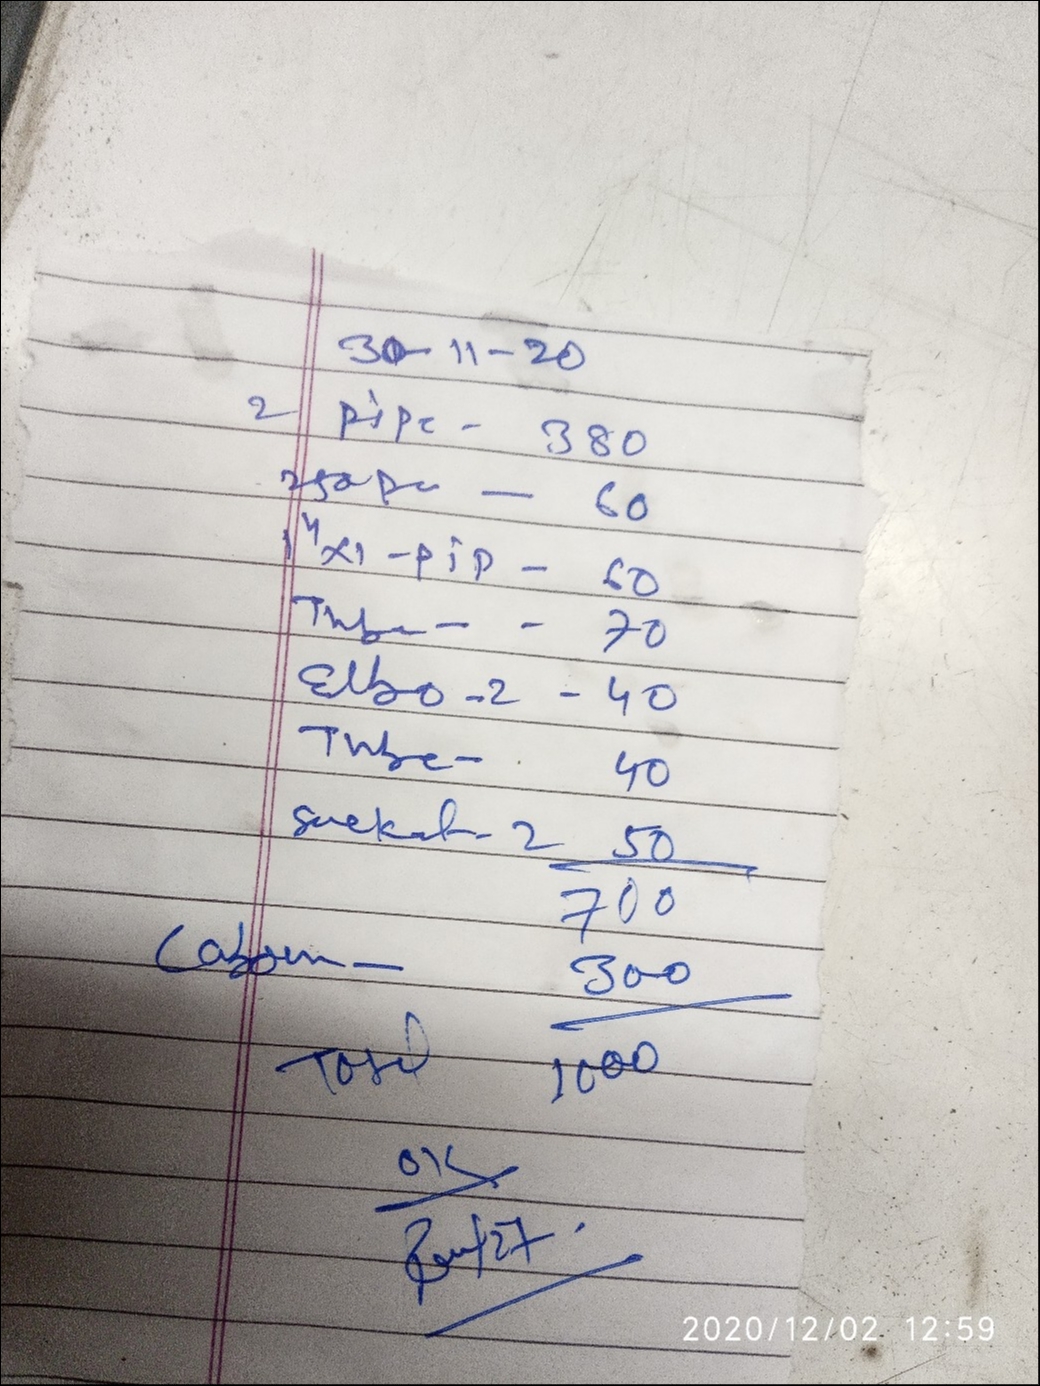 30-11-20
2 pipe - 380
— 60
1"x1 - pip - 60
Tube - - 70
Elbo - 2 - 40
Tube - 40
- 2 50
700
Labour - 300
Totel 1000
OK
2020/12/02 12:59